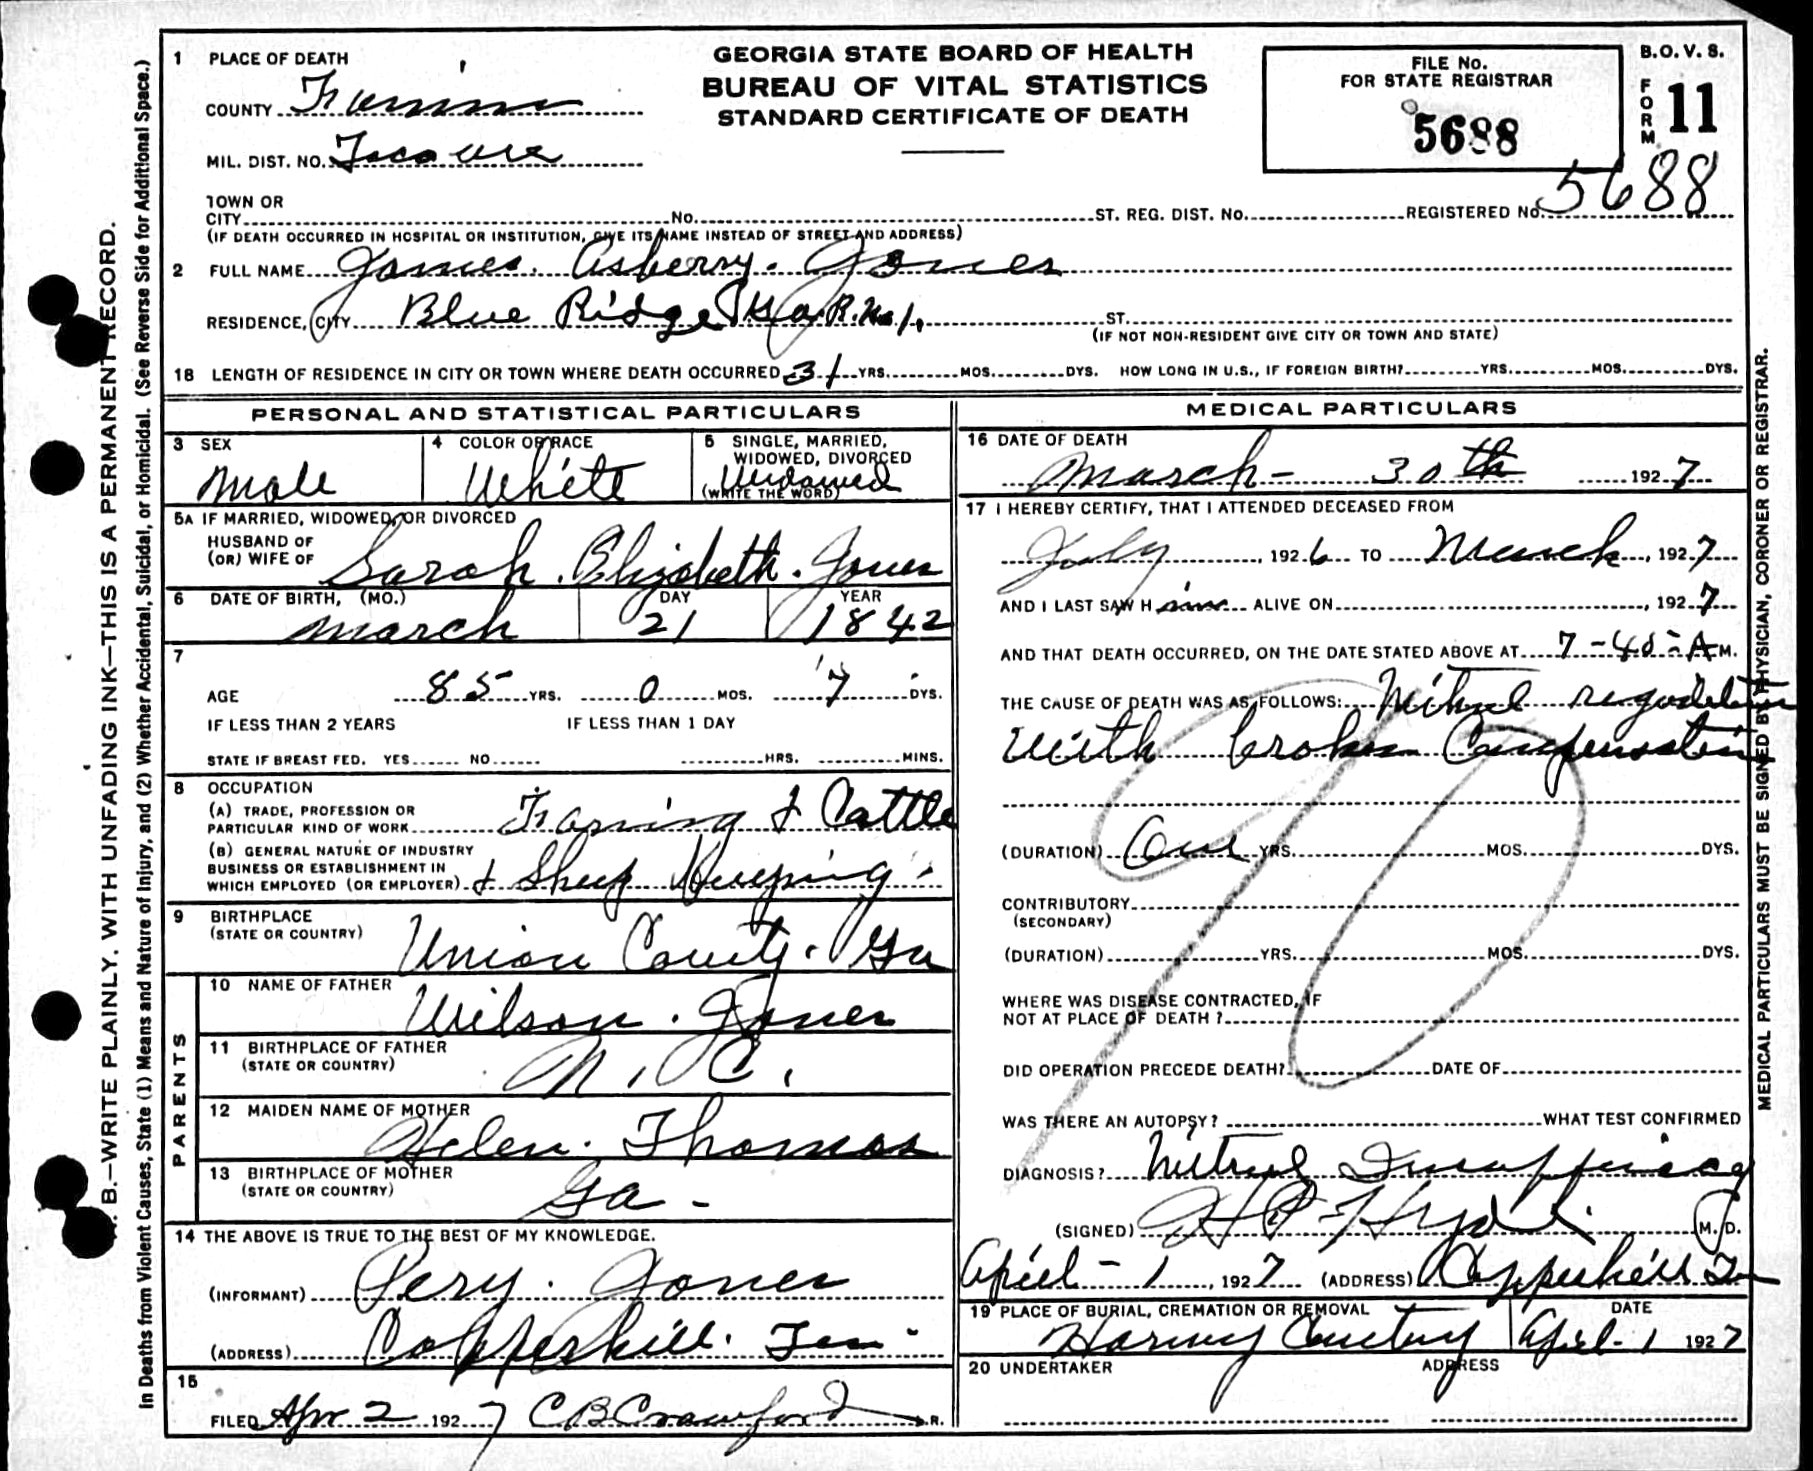 GEORGIA STATE BOARD OF HEALTH
BUREAU OF VITAL STATISTICS
STANDARD CERTIFICATE OF DEATH
FILE No.
FOR STATE REGISTRAR
5688
B.O.V.S.
FORM 11
1 PLACE OF DEATH
COUNTY Fannin
MIL. DIST. NO.
TOWN OR
CITY No. ST. REG. DIST. No. REGISTERED No. 5688
(IF DEATH OCCURRED IN HOSPITAL OR INSTITUTION, GIVE ITS NAME INSTEAD OF STREET AND ADDRESS)
2 FULL NAME James. Asberry. Jones
RESIDENCE, CITY Blue Ridge Ga. R. No 1. ST.
(IF NOT NON-RESIDENT GIVE CITY OR TOWN AND STATE)
18 LENGTH OF RESIDENCE IN CITY OR TOWN WHERE DEATH OCCURRED 31 YRS. MOS. DYS. HOW LONG IN U.S., IF FOREIGN BIRTH? YRS. MOS. DYS.
PERSONAL AND STATISTICAL PARTICULARS
3 SEX
Male
4 COLOR OR RACE
White
5 SINGLE, MARRIED,
WIDOWED, DIVORCED
Widowed
(WRITE THE WORD)
5A IF MARRIED, WIDOWED, OR DIVORCED
HUSBAND OF
(OR) WIFE OF Sarah. Elizabeth. Jones
6 DATE OF BIRTH, (MO.) DAY YEAR
March 21 1842
7
AGE 85 YRS. 0 MOS. 7 DYS.
IF LESS THAN 2 YEARS IF LESS THAN 1 DAY
STATE IF BREAST FED. YES NO HRS. MINS.
8 OCCUPATION
(A) TRADE, PROFESSION OR
PARTICULAR KIND OF WORK Farming & Cattle
(B) GENERAL NATURE OF INDUSTRY
BUSINESS OR ESTABLISHMENT IN
WHICH EMPLOYED (OR EMPLOYER) & Sheep Keeping
9 BIRTHPLACE
(STATE OR COUNTRY) Union County. Ga
PARENTS
10 NAME OF FATHER
Wilson. Jones
11 BIRTHPLACE OF FATHER
(STATE OR COUNTRY) N. C.
12 MAIDEN NAME OF MOTHER
Helen. Thomas
13 BIRTHPLACE OF MOTHER
(STATE OR COUNTRY) Ga -
14 THE ABOVE IS TRUE TO THE BEST OF MY KNOWLEDGE.
(INFORMANT) Pery. Jones
(ADDRESS) Copperhill. Ten
15
FILED Apr 2 1927 C B Crawford L.R.
MEDICAL PARTICULARS
16 DATE OF DEATH
March - 30th 1927
17 I HEREBY CERTIFY, THAT I ATTENDED DECEASED FROM
July, 1926 TO March, 1927
AND I LAST SAW Him ALIVE ON , 1927
AND THAT DEATH OCCURRED, ON THE DATE STATED ABOVE AT 7-40-A M.
THE CAUSE OF DEATH WAS AS FOLLOWS: Mitral
with broken Compensation
90
(DURATION) One YRS. MOS. DYS.
CONTRIBUTORY
(SECONDARY)
(DURATION) YRS. MOS. DYS.
WHERE WAS DISEASE CONTRACTED, IF
NOT AT PLACE OF DEATH?
DID OPERATION PRECEDE DEATH? DATE OF
WAS THERE AN AUTOPSY? WHAT TEST CONFIRMED
DIAGNOSIS? Mitral
(SIGNED) M. D.
April - 1, 1927 (ADDRESS) Copperhill Ten
19 PLACE OF BURIAL, CREMATION OR REMOVAL DATE
April - 1 1927
20 UNDERTAKER ADDRESS
N. B.—WRITE PLAINLY, WITH UNFADING INK—THIS IS A PERMANENT RECORD.
In Deaths from Violent Causes, State (1) Means and Nature of Injury, and (2) Whether Accidental, Suicidal, or Homicidal. (See Reverse Side for Additional Space.)
MEDICAL PARTICULARS MUST BE SIGNED BY PHYSICIAN, CORONER OR REGISTRAR.